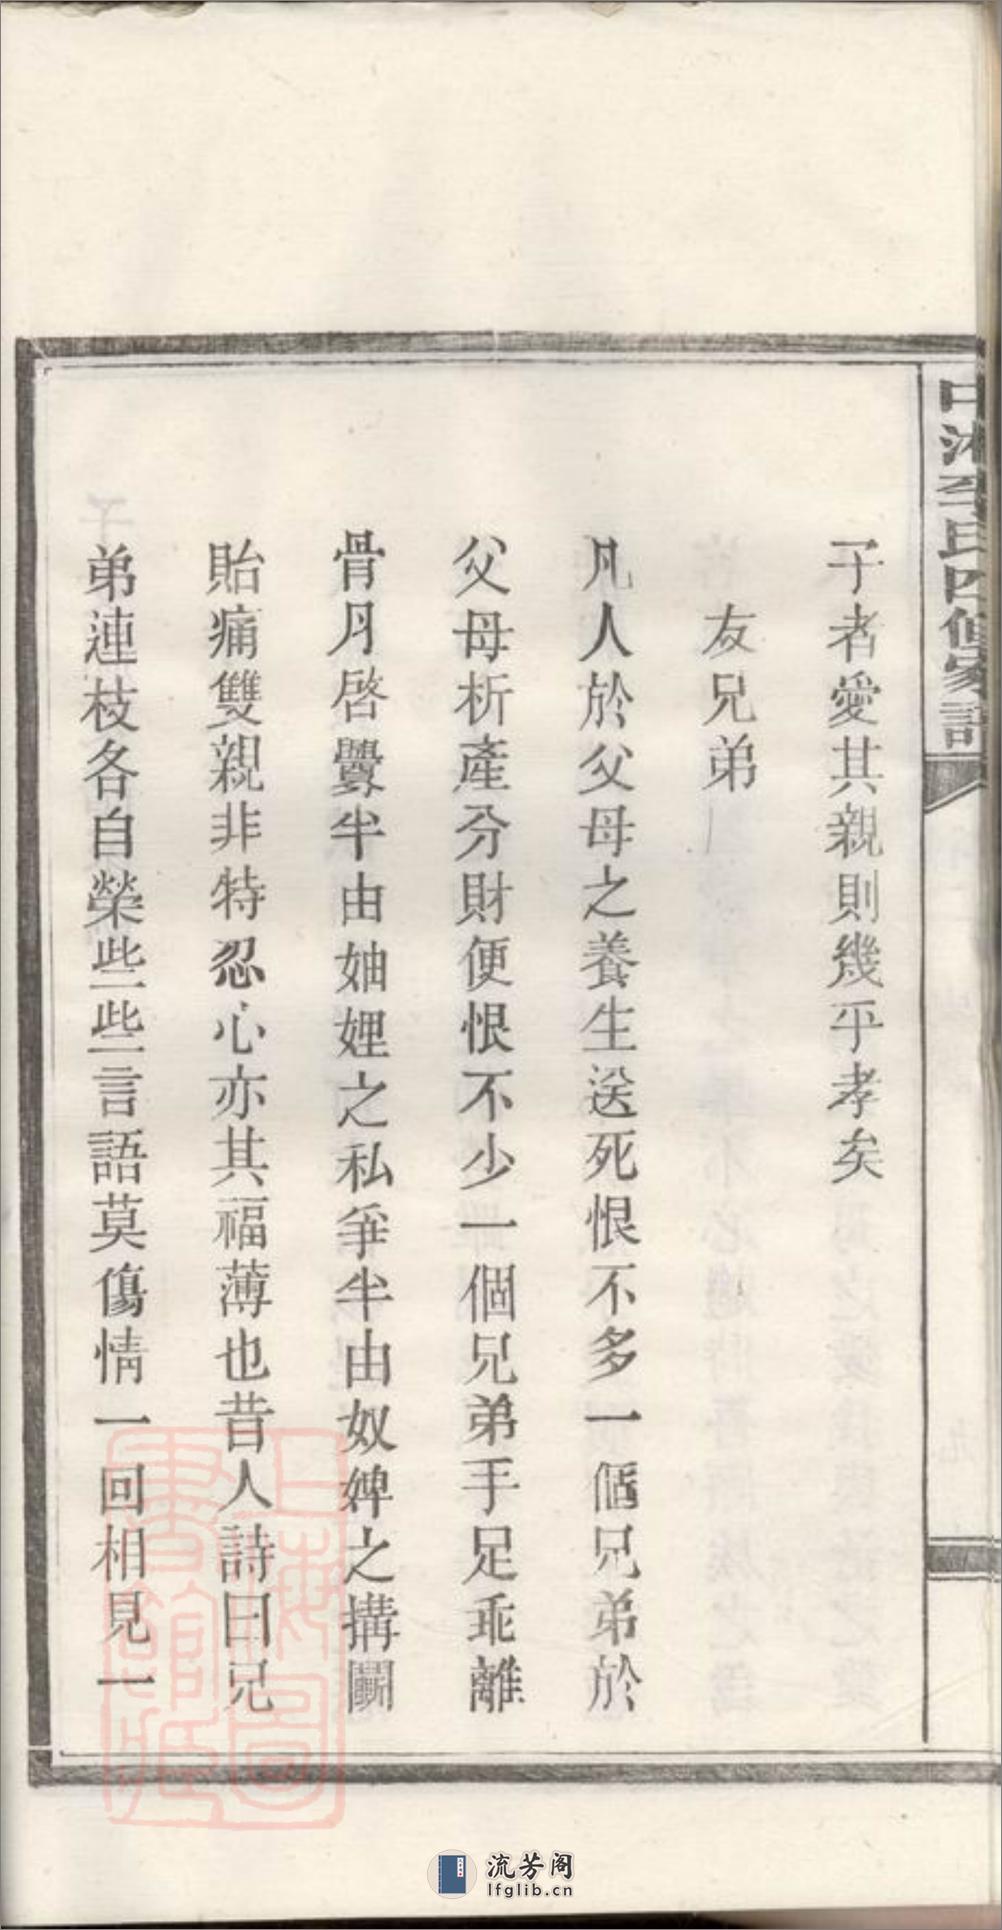 中湘李氏四修家譜
子者愛其親則幾乎孝矣
友兄弟
凡人於父母之養生送死恨不多一個兄弟於
父母析產分財便恨不少一個兄弟手足乖離
骨月啓釁半由妯娌之私爭半由奴婢之搆鬬
貽痛雙親非特忍心亦其福薄也昔人詩曰兄
弟連枝各自榮些些言語莫傷情一回相見一
上海圖書館藏
流芳阁
lfglib.cn